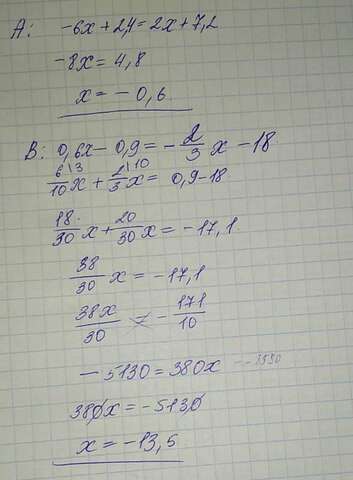 A: -6x + 2,4 = 2x + 7,2
-8x = 4,8
x = -0,6
B: 0,6x - 0,9 = -2/3 x - 18
6\3/10 x + 2\10/3 x = 0,9 - 18
18/30 x + 20/30 x = -17,1
38/30 x = -17,1
38x/30 = -171/10
-5130 = 380x
380x = -5130
x = -13,5